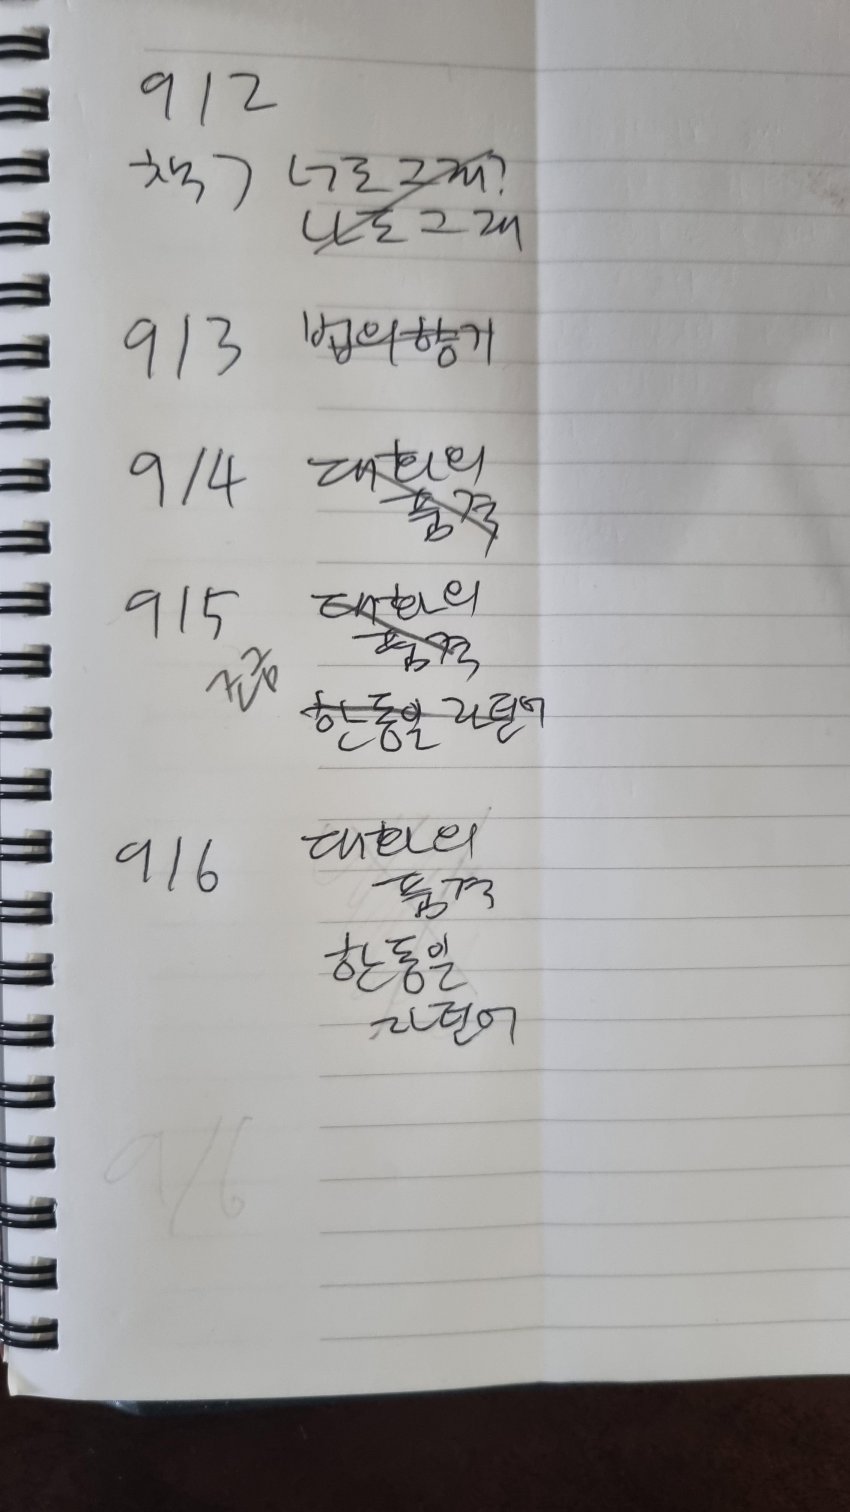 9/2
책 7) 너도 그래?
나도 그래
9/3 법의 향기
9/4 대화의
품격
9/5 대화의
품격
한동일 라틴어
9/6 대화의
품격
한동일
라틴어
9/6